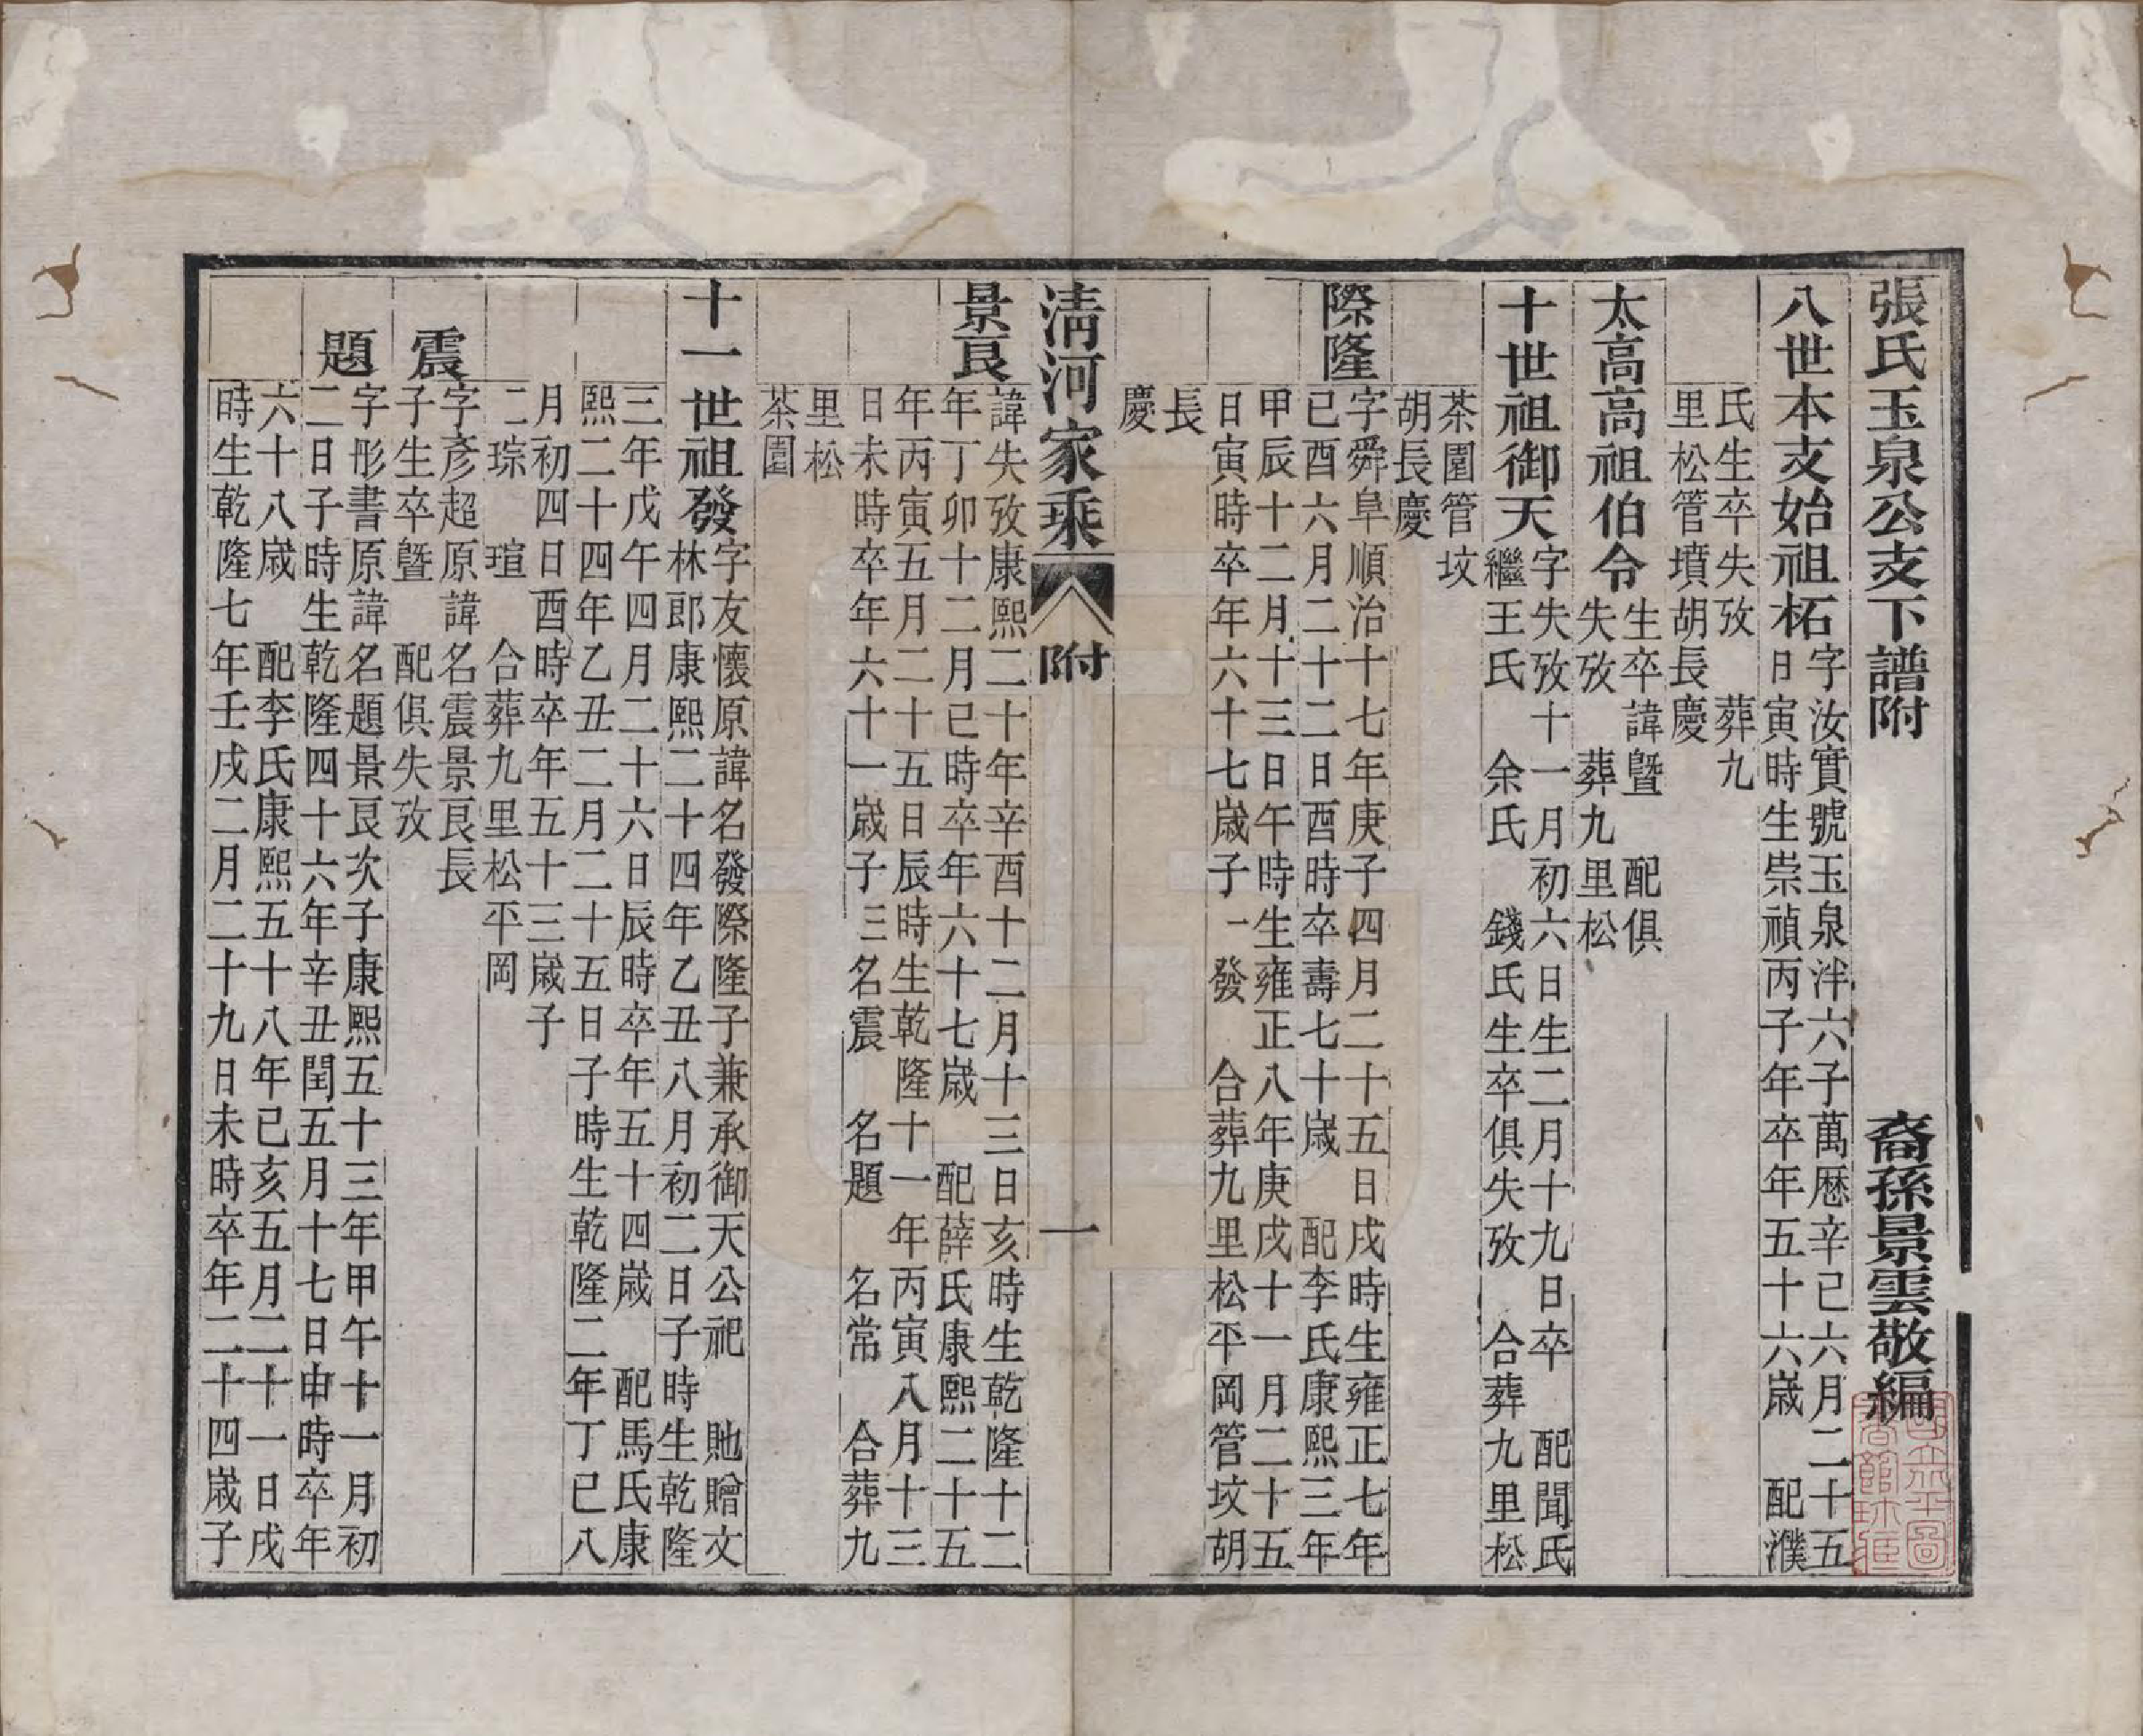 張氏玉泉公支下譜附　裔孫景雲敬編
八世本支始祖柘
字汝實號玉泉泮六子萬曆辛巳六月二十五
日寅時生崇禎丙子年卒年五十六歲　配濮
氏生卒失攷　葬九
里松管墳胡長慶
太高高祖伯令
生卒諱暨　配俱
失攷　葬九里松
十世祖御天
字失攷十一月初六日生二月十九日卒　配聞氏
繼王氏　余氏　錢氏生卒俱失攷　合葬九里松
茶園管坟
胡長慶
際隆
字舜阜順治十七年庚子四月二十五日戌時生雍正七年
己酉六月二十二日酉時卒壽七十歲　配李氏康熙三年
甲辰十二月十三日午時生雍正八年庚戌十一月二十五
日寅時卒年六十七歲子一發　合葬九里松平岡管坟胡
長
慶
清河家乘　附　一
景良
諱失攷康熙二十年辛酉十二月十三日亥時生乾隆十二
年丁卯十二月己時卒年六十七歲　配薛氏康熙二十五
年丙寅五月二十五日辰時生乾隆十一年丙寅八月十三
日未時卒年六十一歲子三名震　名題　名常　合葬九
里松
茶園
十一世祖發
字友懷原諱名發際隆子兼承御天公祀　貤贈文
林郎康熙二十四年乙丑八月初二日子時生乾隆
三年戊午四月二十六日辰時卒年五十四歲　配馬氏康
熙二十四年乙丑二月二十五日子時生乾隆二年丁巳八
月初四日酉時卒年五十三歲子
二琮　瑄　合葬九里松平岡
震
字彥超原諱名震景良長
子生卒暨　配俱失攷
題
字彤書原諱名題景良次子康熙五十三年甲午十一月初
二日子時生乾隆四十六年辛丑閏五月十七日申時卒年
六十八歲　配李氏康熙五十八年己亥五月二十一日戌
時生乾隆七年壬戌二月二十九日未時卒年二十四歲子